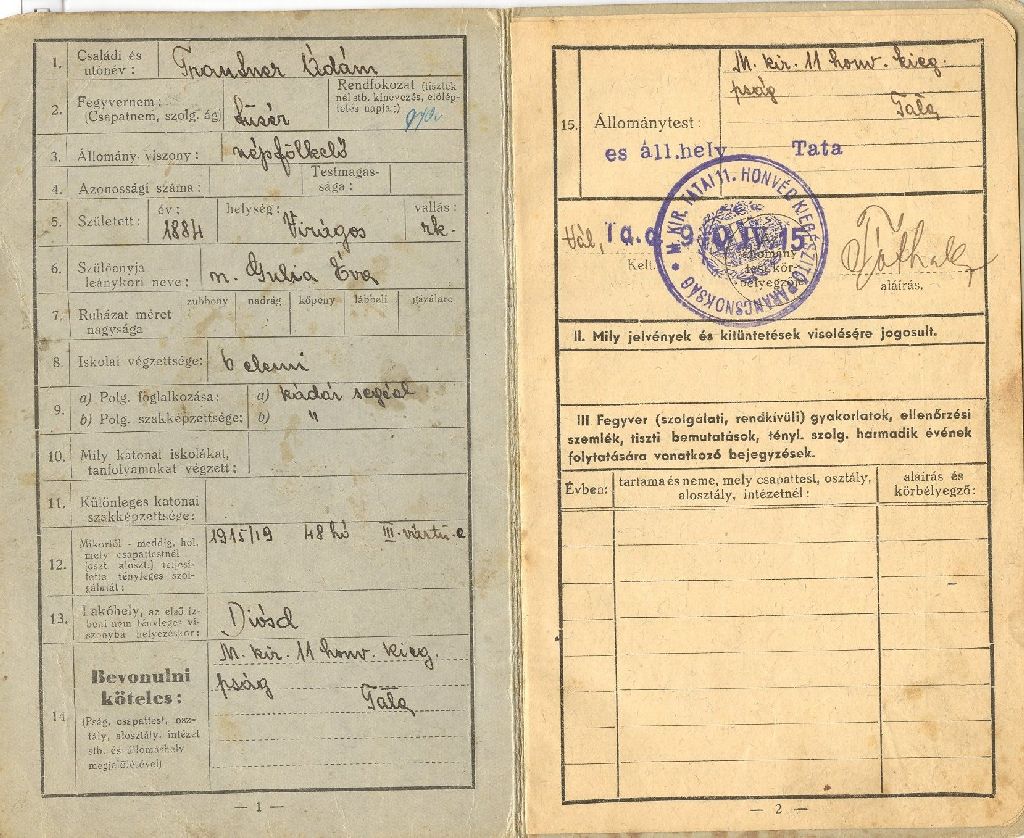 1. Családi és
utónév: Ádám
2. Fegyvernem:
(Csapatnem, szolg. ág)
Rendfokozat (tisztek-
nél stb. kinevezés, előlép-
tetés napja:)
3. Állomány viszony: népfölkelő
4. Azonossági száma:
Testmagas-
sága:
5. Született: év: 1884 helység: Virágos vallás: rk.
6. Szülőanyja
leánykori neve: n. Gulia Éva
7. Ruházat méret
nagysága
zubbony nadrág köpeny lábbeli gázálarc
8. Iskolai végzettsége: 6 elemi
9. a) Polg. foglalkozása: a) kádár segéd
b) Polg. szakképzettsége: b) "
10. Mily katonai iskolákat,
tanfolyamokat végzett:
11. Különleges katonai
szakképzettsége:
12. Mikortól - meddig, hol,
mely csapattestnél
(oszt. aloszt.) teljesí-
tette tényleges szol-
gálatát:
1915/19 48 hó III.
13. Lakóhely, az első íz-
beni nem tényleges vi-
szonyba helyezéskor: Diósd
14. Bevonulni
köteles:
(Pság, csapattest, osz-
tály, alosztály, intézet
stb. és állomáshely
megjelölésével)
M. kir. 11 honv. kieg.
pság
Tata
— 1 —
15. Állománytest:
M. kir. 11 honv. kieg.
pság
Tata
es áll.hely Tata
M. KIR. TATAI 11. HONVÉD KIEGÉSZITŐ PARANCSNOKSÁG
Kelt.
állomány
test kör-
bélyegzője
aláírás.
II. Mily jelvények és kitüntetések viselésére jogosult.
III Fegyver (szolgálati, rendkívüli) gyakorlatok, ellenőrzési
szemlék, tiszti bemutatások, tényl. szolg. harmadik évének
folytatására vonatkozó bejegyzések.
Évben:
tartama és neme, mely csapattest, osztály,
alosztály, intézetnél:
aláírás és
körbélyegző:
— 2 —